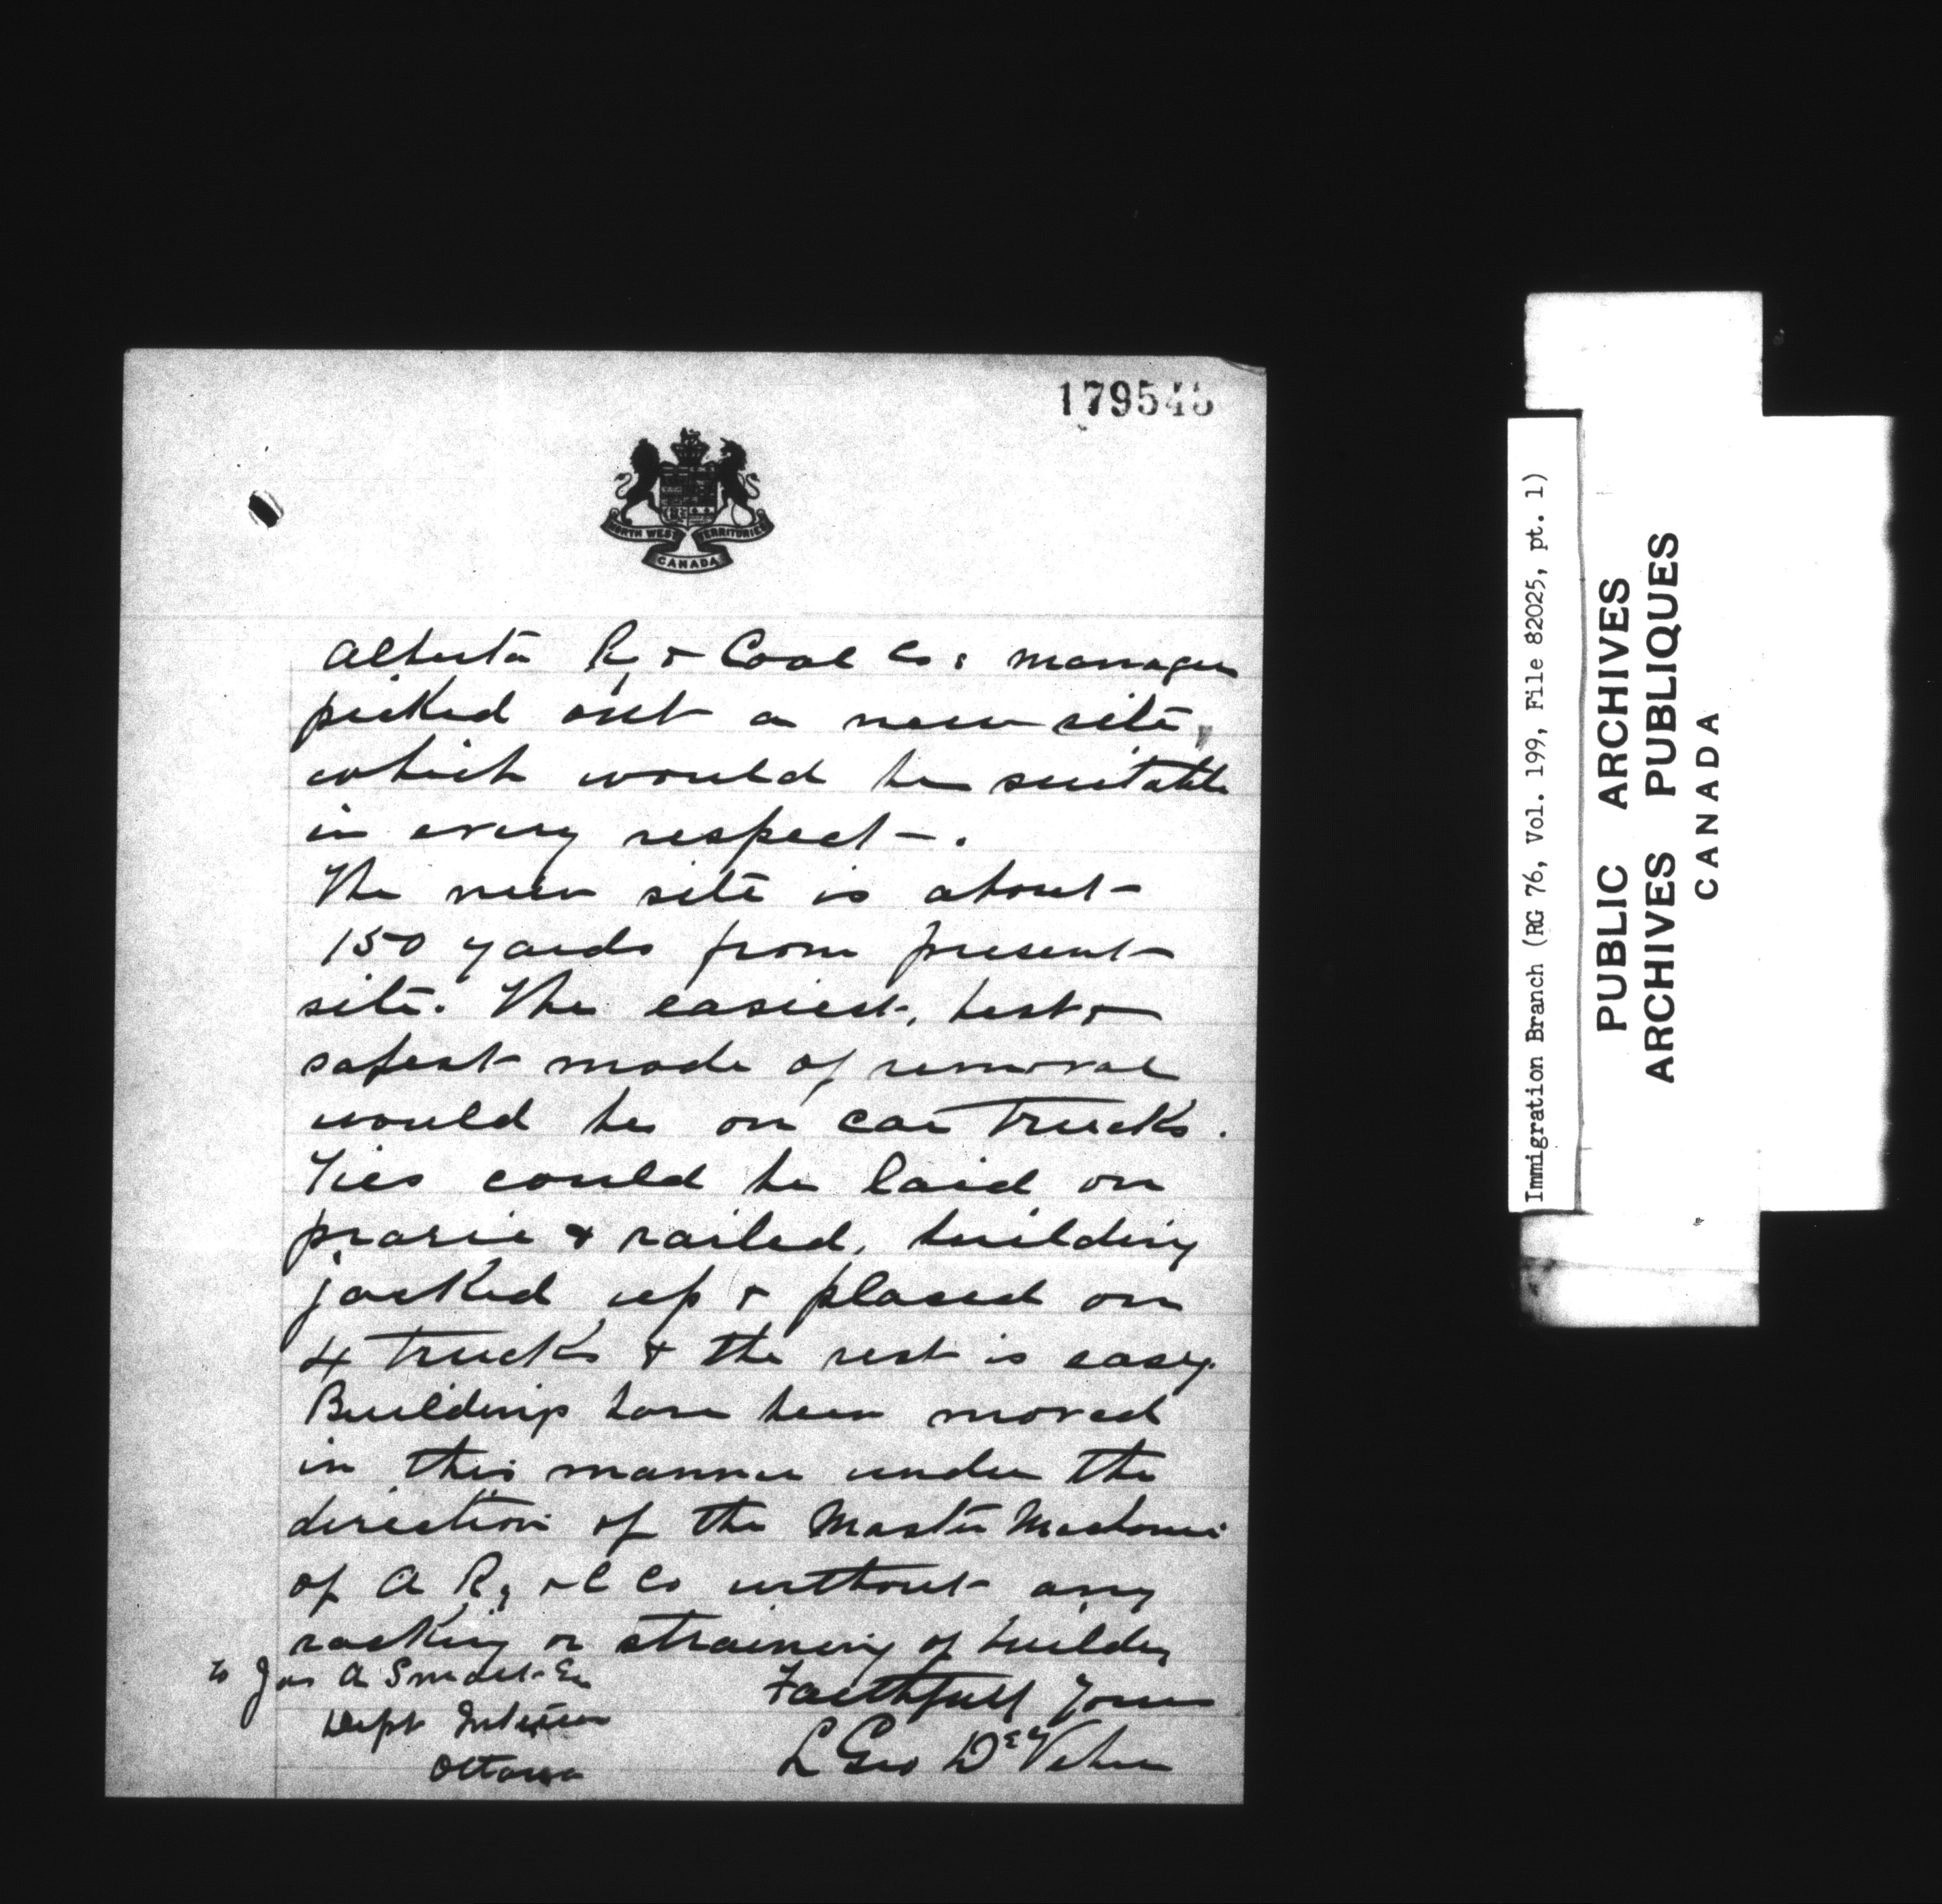 179545
NORTH WEST TERRITORIES
CANADA
Alberta Ry & Coal Co: manager
picked out a new site,
which would be suitable
in every respect.
The new site is about
150 yards from present
site. The easiest, best &
safest mode of removal
would be on car trucks.
Ties could be laid on
prarie & railed, building
jacked up & placed on
4 trucks & the rest is easy.
Buildings have been moved
in this manner under the
direction of the Master Mechanic
of A Ry & C Co without any
racking or straining of building
Faithfully Yours
L Geo DeVeber
to Jas A Smart Esq
Dept Interior
Ottawa
Immigration Branch (RG 76, Vol. 199, File 82025, pt. 1)
PUBLIC ARCHIVES
ARCHIVES PUBLIQUES
CANADA